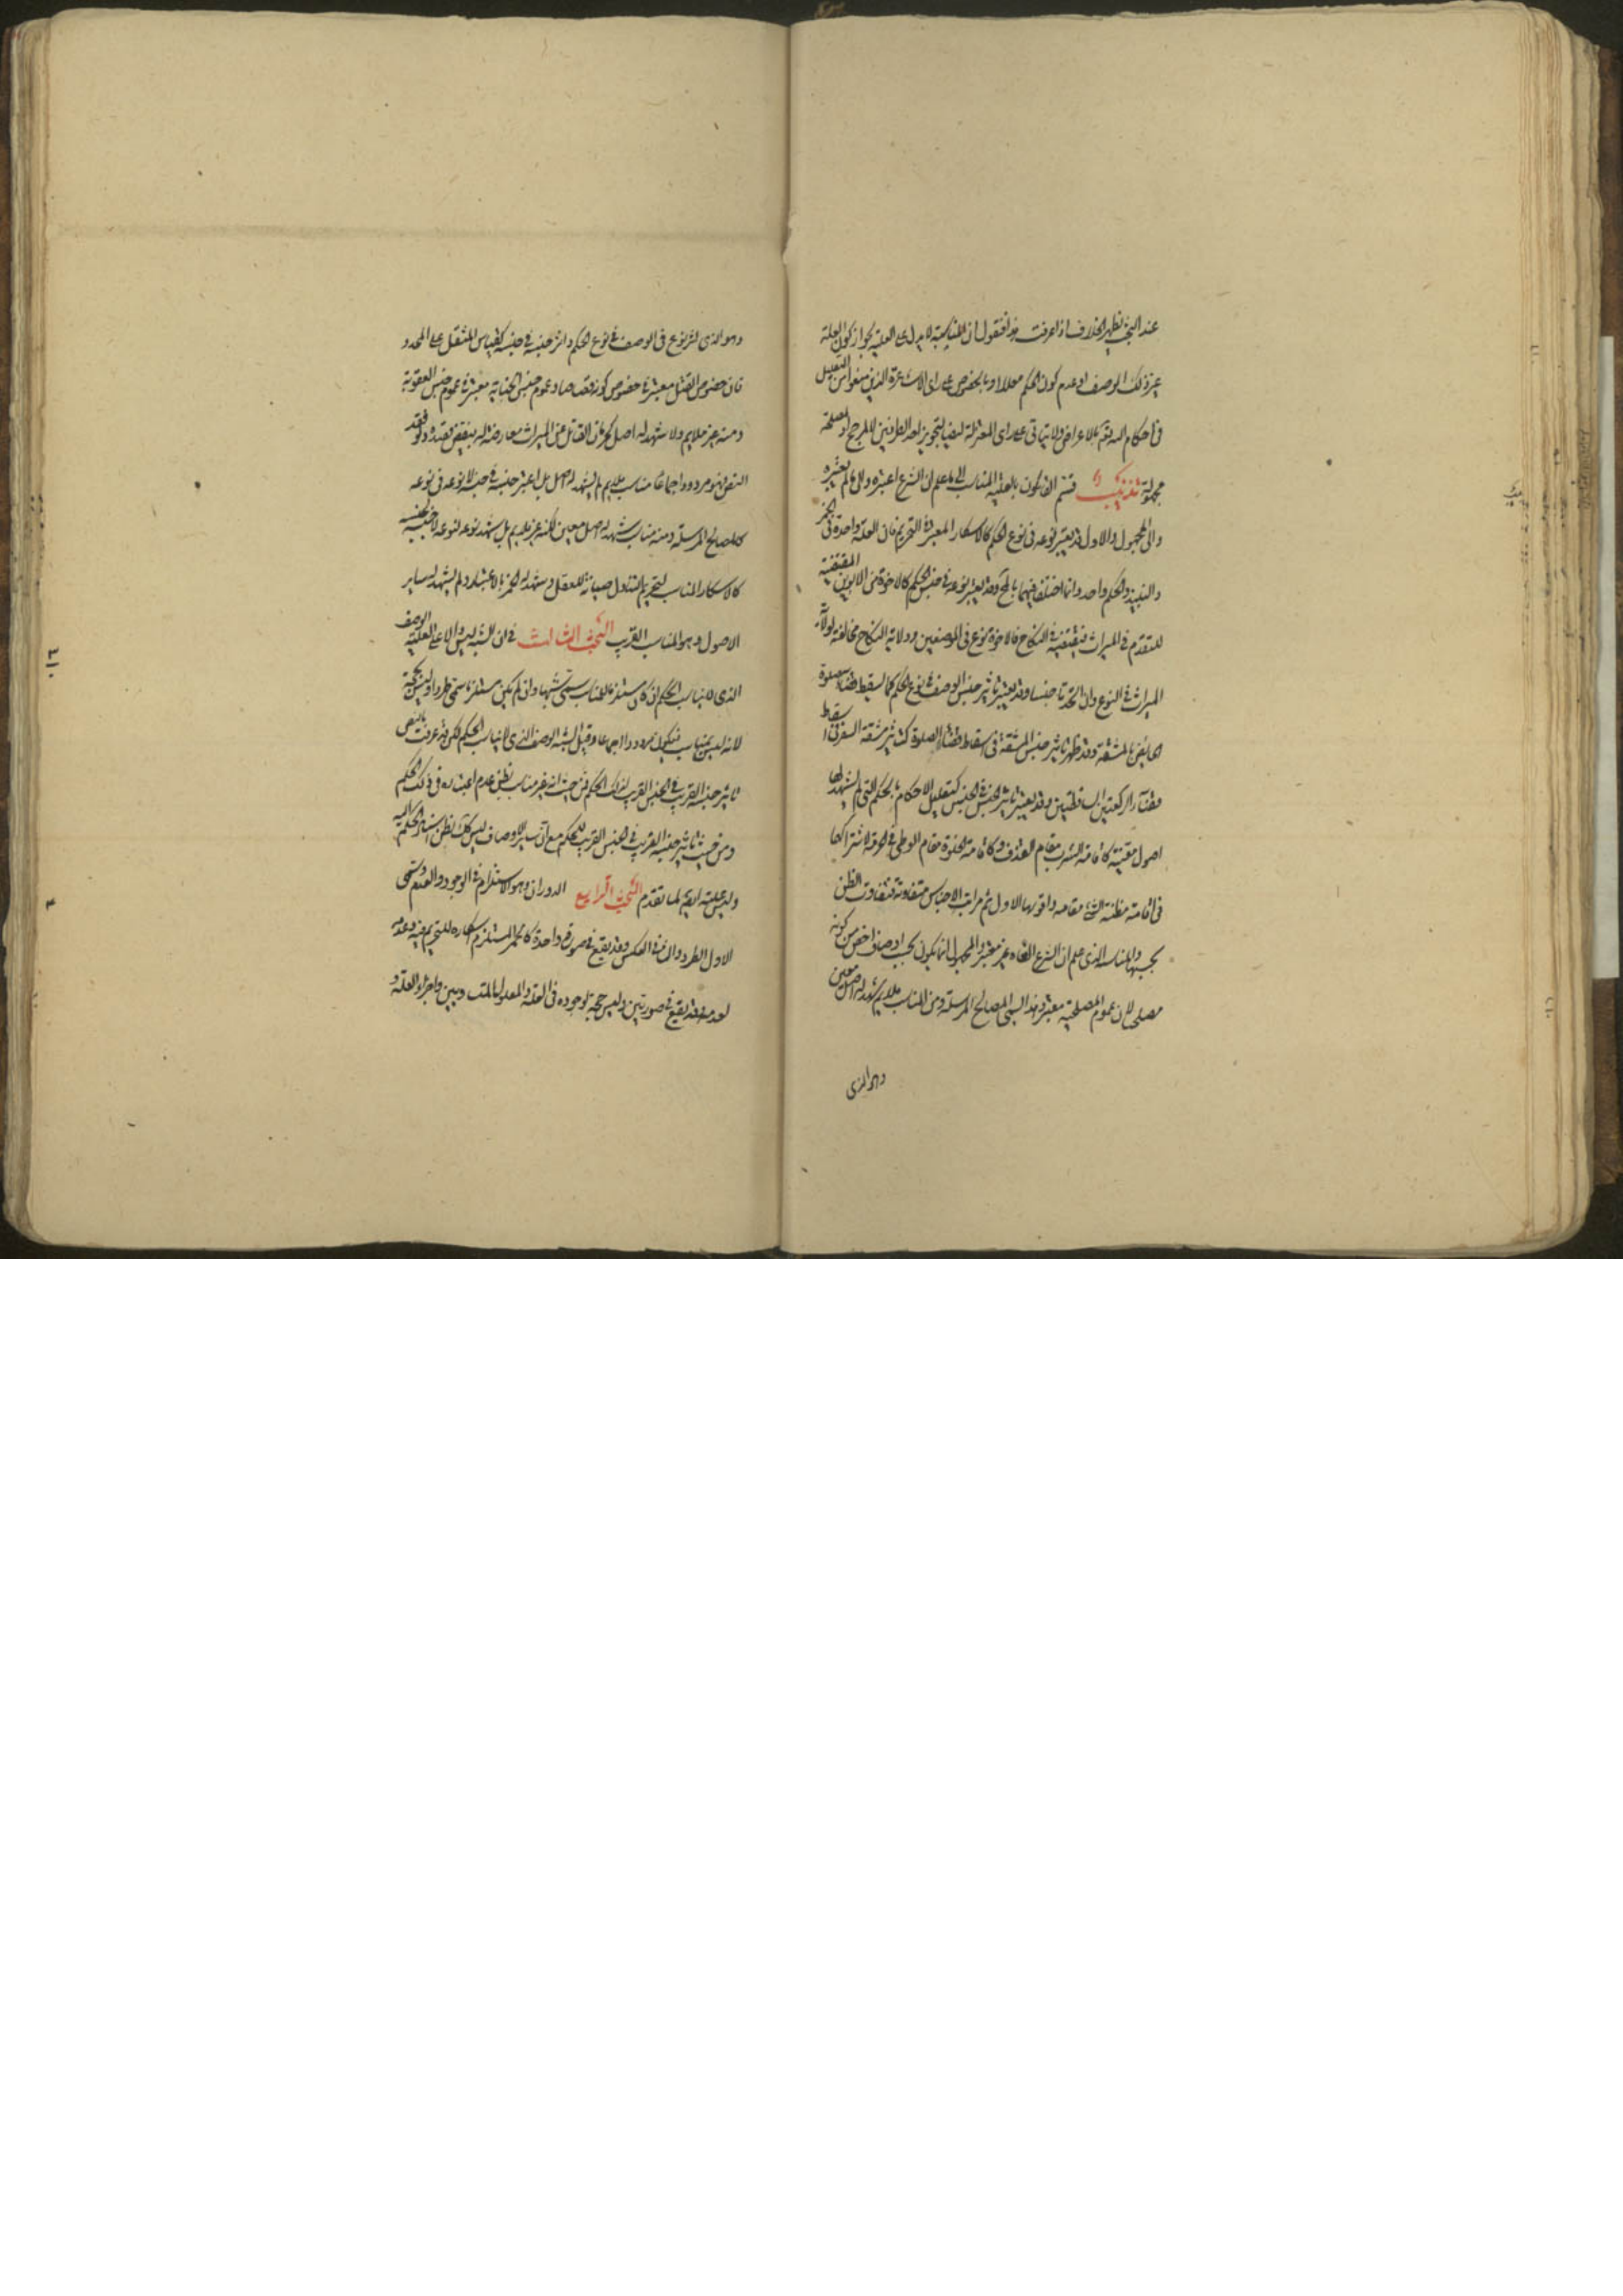 عند البحث يظهر الخلاف اذا عرفت هذا فنقول ان المناسبة لا يدل على العلية لجواز كون العلة
غير ذلك الوصف او عدم كون الحكم معللا او بالخصوص على راى الاشاعرة الذين منعوا من التعليل
فى احكام الله تعالى بالاغراض ولا يتاتى على راى المعتزلة ايضا لتجويز احد الطرفين لا لمرجح او لمصلحة
مجهولة تذنيب قسم القائلون بالعلية المناسب الى ما علم ان الشرع اعتبره والى ما لم يعتبره
والى المجهول والاول قد يعتبر نوعه فى نوع الحكم كالاسكار المعتبر فى التحريم فان العلة واحدة فى الخمر
والنبيذ والحكم واحد وانما اختلفا فيهما بالمحل وقد يعتبر نوعه فى جنس الحكم كالاخوة من الابوين المقتضية
للتقدم فى الميراث فيقتضيه فى النكاح فالاخوة نوع فى الموضعين وولاية النكاح مخالفة لولاية
الميراث فى النوع وان اتحدتا جنسا وقد يعتبر تاثير جنس الوصف فى نوع الحكم كما اسقط قضاء صلوة
الحائض بالمشقة وقد ظهر تاثير جنس المشقة فى اسقاط قضاء الصلوة كتاثير مشقة السفر فى اسقاط
قضاء الركعتين الساقطتين وقد يعتبر تاثير الجنس فى الجنس كتعليل الاحكام بالحكم التى لم يشهد لها
اصول معينة كاقامة الشرب مقام القذف وكاقامة الخلوة مقام الوطى فى الحرمة لاشتراكهما
فى اقامة مظنة الشئ مقامه واقويها الاول ثم مراتب الاجناس متفاوتة فيتفاوت الظن
بحسبها والمناسب الذى علم ان الشرع الغاه غير معتبر والمجهول انما يكون بحسب اوصاف اخص من كونه
مصلحيا لان عموم المصلحية معتبر وهذا يسمى المصالح المرسلة ومن المناسب ملايم شهد له اصل معين
وهو الذى
وهو الذى اثر نوع فى الوصف فى نوع الحكم واثر جنسه فى جنسه كقياس المثقل على المحدد
فان خصوص القتل معتبر فى خصوص كونه قصاصا وعموم جنس الجناية معتبر فى عموم جنس العقوبة
ومنه غير ملايم ولا شهد له اصل كحرمان القاتل عن الميراث معارضة له بنقيض قصده ولو فقد
النص فهو مردود اجماعا مناسب ملايم لم يشهد له اصل بل اعتبر جنسه فى جنسه لا نوعه فى نوعه
كالمصالح المرسلة ومنه مناسب شهد له اصل معين لكنه غير ملايم بل شهد نوعه لنوعه لا جنسه لجنسه
كالاسكار المناسب لتحريم التناول صيانة للعقل وشهد له الخمر بالاعتبار ولم يشهد له ساير
الاصول وهو المناسب القريب البحث الثالث فى ان الشبه ليس دالا على العلية الوصف
الذى لا يناسب الحكم ان كان مستلزما للمناسب سمى شبها وان لم يكن مستلزما سمى طردا وليس بحجة
لانه ليس بمناسب فيكون مردودا اجماعا وقيل الشبه الوصف الذى لا يناسب الحكم لكن قد عرفت بالنص
تاثير جنسه القريب فى الجنس القريب لذلك الحكم فمن حيث انه غير مناسب يظن عدم اعتباره فى ذلك الحكم
ومن حيث تاثير جنسه القريب فى الجنس القريب للحكم مع ان ساير الاوصاف ليس كذلك يظن استناد الحكم اليه
وليس علية ايضا لما تقدم البحث الرابع الدوران وهو الاستلزام فى الوجود والعدم ويسمى
الاول الطرد والثانى العكس وقد يقع فى صورة واحدة كالخمر المستلزم اسكاره للتحريم فيه وعدمه
لعدمه وقد يقع فى صورتين وليس حجة لوجوده فى العلة والمعلول المتساويين واجزاء العلة و